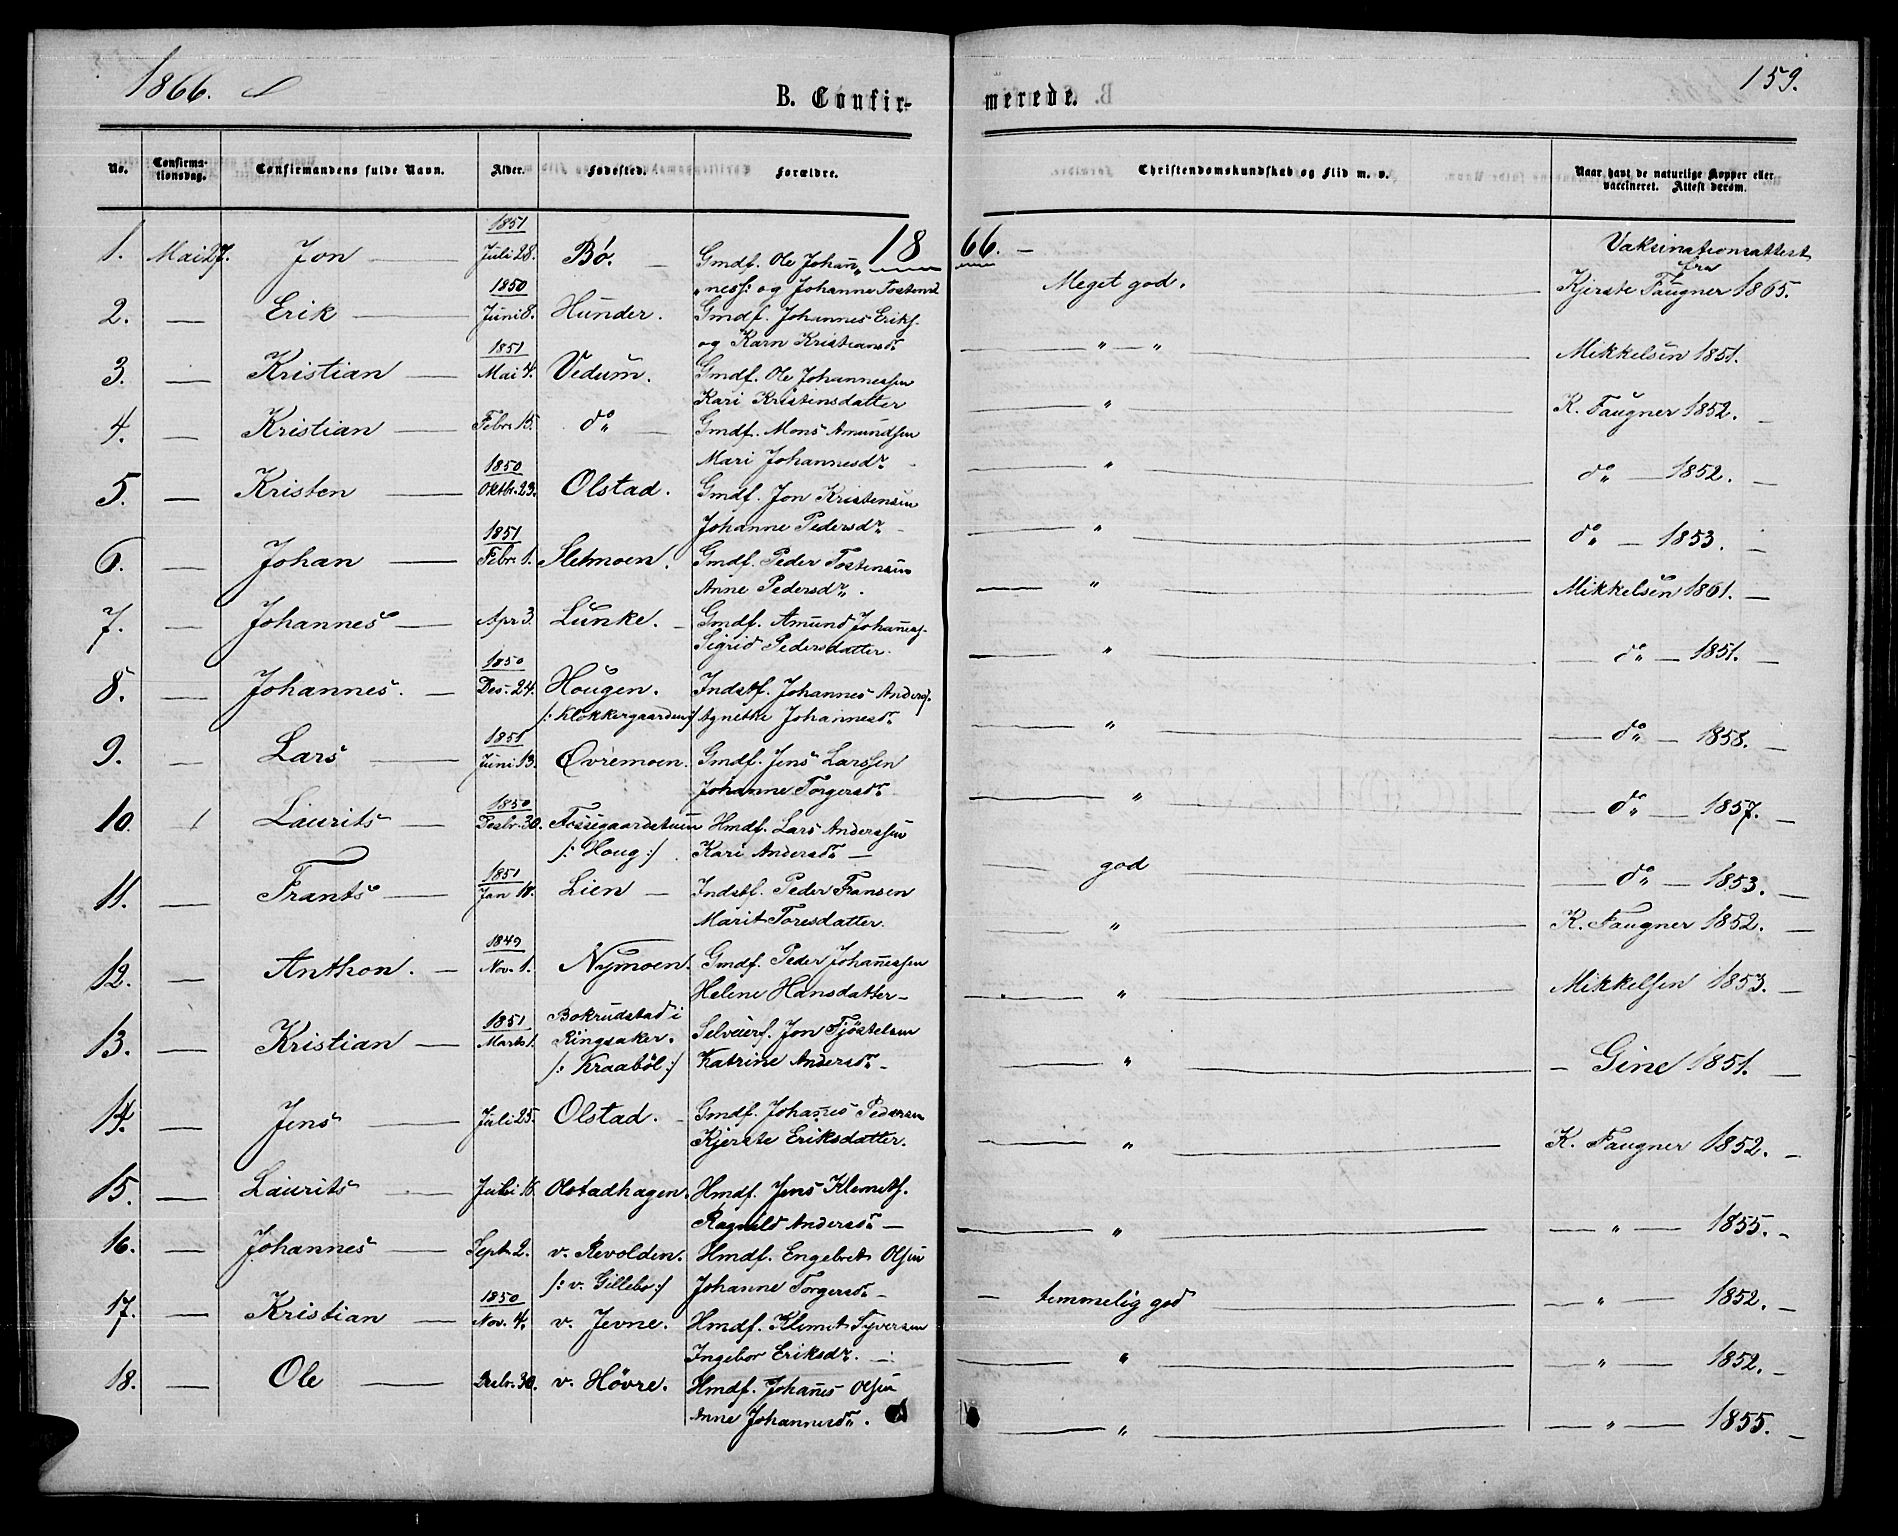 1866.
159.
B. Confirmerede.
No. Confirmationsdag. Confirmandens fulde Navn. Alder. Fødested. Forældre. Christendomskundskab og Flid m. v. Naar havt de naturlige Kopper eller vaccineret. Attest derom.
1866. —
1. Mai 27. Jon — 1851 Juli 28. Bø. — Gmdf. Ole Johan„
„ness: og Johanne Tostensd
Meget god. — Vaksinationsattest
fra
Kjerste Faugner 1865.
2. — Erik — 1850 Juni 8. Hunder. Gmdf. Johannes Eriks.
og Karn Kristiansdr
— " — " — Mikkelsen 1851.
3. — Kristian — 1851 Mai 4. Vedum. Gmdf. Ole Johannessen
Kari Kristensdatter
— " — K. Faugner 1852. —
4. — Kristian — Febr. 15. do — Gmdf. Mons Amundsen
Mari Johannesdr.
— " — do — 1852. —
5. — Kristen — 1850 Oktbr. 23. Olstad. Gmdf. Jon Kristensen
Johanne Pedersdr. —
— " — do — 1853. —
6. — Johan — 1851 Febr. 1. Sletmoen. Gmdf. Peder Tostensen
Anne Pedersdr.
— " — Mikkelsen 1861. —
7. — Johannes — Apr 3. Lunke. — Gmdf. Amund Johaness.
Sigrid Pedersdatter.
— " — do — 1851. —
8. — Johannes. — 1850 Des. 24. Hougen. Indstf. Johannes Anders.
/: Klokkergaarden :/ Agnethe Johannesdr.
— " — do — 1858. —
9. — Lars — 1851 Juni 13. Øvremoen. Gmdf. Jens Larssen
Johanne Torgersdr.
— " — do — 1857. —
10. — Laurits — 1850 Desbr. 30. Fossegaardstuen Hmdf. Lars Anderssen
/: Houg :/ Kari Andersdr. —
— god — do — 1853. —
11. — Frants — 1851 Jan 18. Lien — Indstf. Peder Fransen
Marit Toresdatter.
— " — K. Faugner 1852. —
12. — Anthon. — 1849 Nov. 1. Nymoen. Gmdf. Peder Johanessen
Helene Hansdatter —
— " — Mikkelsen 1853. —
13. — Kristian — 1851 Marts 1. Bokrudstad i
Ringsaker. Selveierf. Jon Tjøstelsen
/: Kraabøl :/ Katrine Andersdr. —
— " — Gine 1851. —
14. — Jens — Juli 25. Olstad. — Gmdf. Johanes Pedersen
Kjerste Eriksdatter.
— " — K. Faugner 1852. —
15. — Laurits — Juli 18. Olstadhagen. Hmdf. Jens Klemets.
Ragnild Andersdr. —
— " — " — 1855. —
16. — Johannes — Sept. 2. v. Revolden. Hmdf. Engebret Olsen
/: v. Gillebo :/ Johanne Torgersdr. —
— temmelig god — " — 1852. —
17. — Kristian — 1850 Nov. 4. v. Jevne. Hmdf. Klemet Syversen
Ingebor Eriksdr. —
— " — " — 1852. —
18. — Ole — Desbr. 30. v. Høvre. Hmdf. Johanes Olsen
Anne Johannesdr.
— " — " — 1855. —